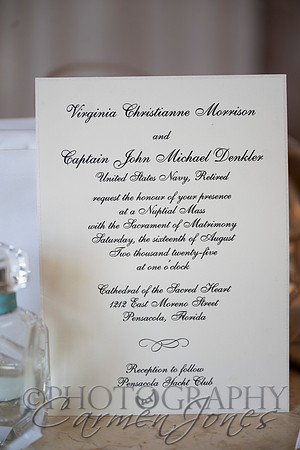 Virginia Christianne Morrison
and
Captain John Michael Denkler
United States Navy, Retired
request the honour of your presence
at a Nuptial Mass
with the Sacrament of Matrimony
Saturday, the sixteenth of August
Two thousand twenty-five
at one o'clock
Cathedral of the Sacred Heart
1212 East Moreno Street
Pensacola, Florida
Reception to follow
Pensacola Yacht Club
©PHOTOGRAPHY
Carmen Jones